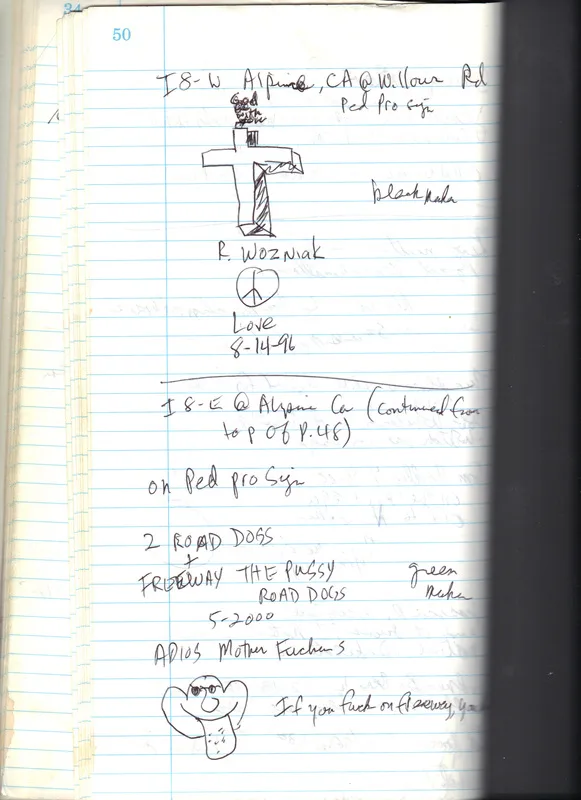 34
50
I 8-W Alpine, CA @ Willows Rd
Ped Pro Sign
God
with
you
black
R. WOZNIAK
Love
8-14-96
I 8-E @ Alpine Ca (continued from
top of P. 48)
on Ped pro Sign
2 ROAD DOGS
+
FREEWAY THE PUSSY
ROAD DOGS
green
5-2000
ADIOS Mother Fuckers
If you fuck on freeway, yo